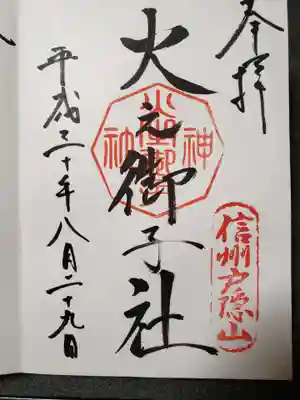 奉拝
火之御子社
信州戸隠山
平成三十年八月二十九日